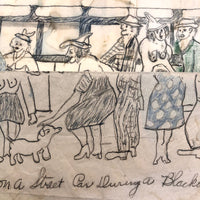 on a Street Car During a Blacko